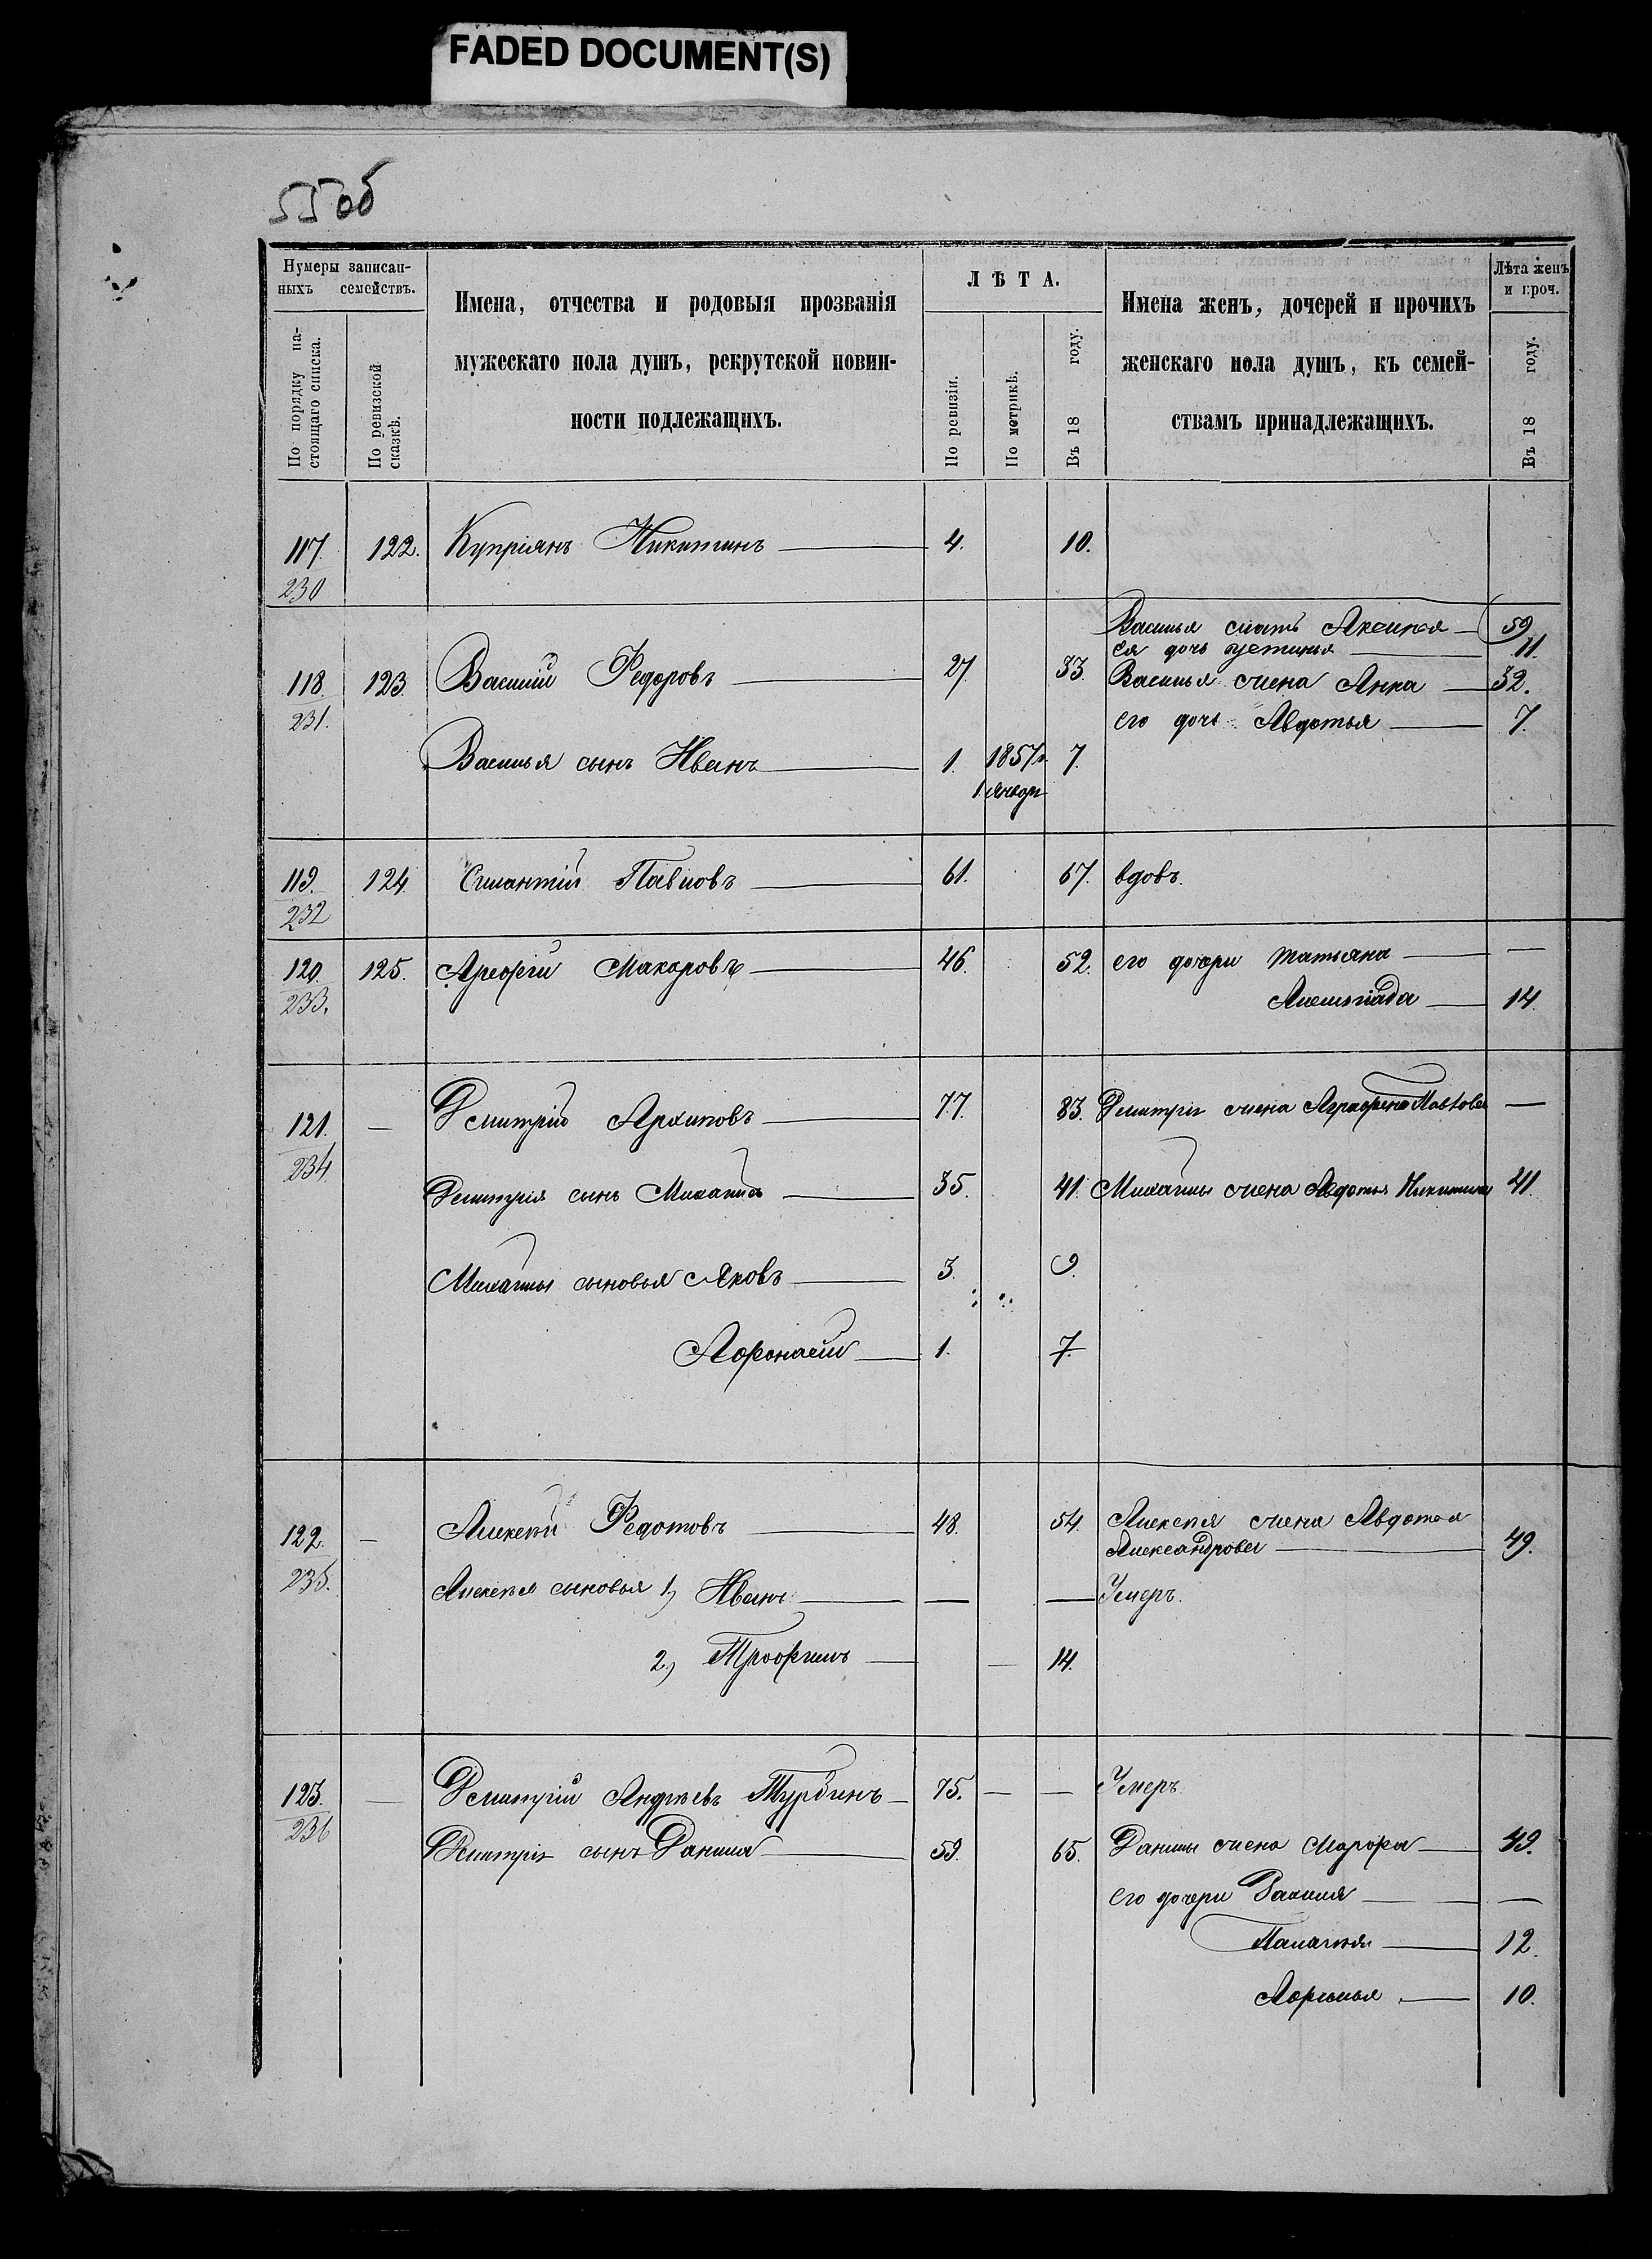 FADED DOCUMENT(S)
55об
Нумеры записан-
ныхъ семействъ.
По порядку на-
стоящаго списка.
По ревизской
сказкѣ.
Имена, отчества и родовыя прозванія
мужескаго пола душъ, рекрутской повин-
ности подлежащихъ.
ЛѢТА.
По ревизіи.
По метрикѣ.
Въ 18 году.
Имена женъ, дочерей и прочихъ
женскаго пола душъ, къ семей-
ствамъ принадлежащихъ.
Лѣта женъ
и проч.
Въ 18 году.
117. 122. Купріянъ Никитинъ 4. 10.
230
Василья мать Аксинья 59
ея дочь Устинья 11.
118. 123. Василій Федоровъ 27. 33. Василья жена Анна 32.
231. его дочь Авдотья 7.
Василья сынъ Иванъ 1. 1857г. 7.
1 Январ
119. 124. Силантій Павловъ 61. 67. вдовъ.
232
120. 125. Арефій Макаровъ 46. 52. его дочери Татьяна —
233. 14.
121. — Дмитрій Архиповъ 77. 83. Дмитрія жена Аграфена —
234
Дмитрія сынъ Михаила 35. 41. Михайлы жена Авдотья Никитина 41.
Михайлы сыновья Яковъ 3. 9.
Афонасій 1. 7.
122. — Алексѣй Федотовъ 48. 54. Алексѣя жена Авдотья
Александрова 49.
235. Алексѣя сыновья 1) Иванъ — — Умеръ.
2) Трофимъ — 14.
123. — Дмитрій Андреевъ Турбинъ 75. — — Умеръ
236 Дмитрія сынъ Данила 59. 65. Данилы жена Марфа 49.
его дочери —
Палагѣя 12.
Афимья 10.